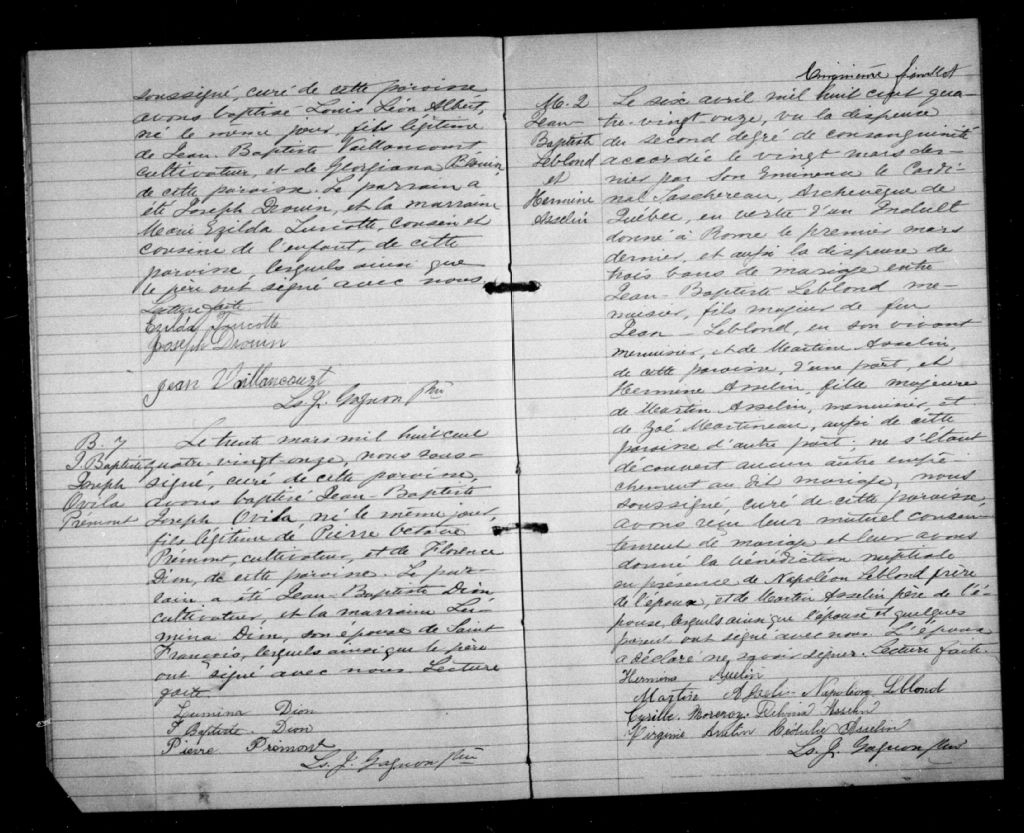 soussigné, curé de cette paroisse
avons baptisé Louis Léon Albert,
né le même jour, fils légitime
de Jean-Baptiste Vaillancourt,
cultivateur, et de Georgiana Drouin
de cette paroisse. Le parrain a
été Joseph Drouin, et la marraine
Marie Ezilda Turcotte, cousin et
cousine de l'enfant, de cette
paroisse, lesquels ainsi que
le père ont signé avec nous.
Lecture faite
Ezilda Turcotte
Joseph Drouin
Jean Vaillancourt
Ls. J. Gagnon Ptre
B. 7
J. Baptiste
Joseph
Ovila
Prémont
Le trente mars mil huit cent
quatre-vingt-onze, nous sous-
signé, curé de cette paroisse,
avons baptisé Jean-Baptiste
Joseph Ovila né le même jour,
fils légitime de Pierre Octave
Prémont, cultivateur, et de Florence
Dion, de cette paroisse. Le par-
rain a été Jean-Baptiste Dion,
cultivateur, et la marraine Lu-
mina Dion, son épouse de Saint
François, lesquels ainsi que le père
ont signé avec nous. Lecture
faite
Lumina Dion
J Baptiste Dion
Pierre Prémont
Ls. J. Gagnon Ptre
feuillet
M. 2
Jean-
Baptiste
Leblond
et
Hermine
Asselin
Le six avril mil huit cent qua-
tre-vingt onze, vu la dispense
du second degré de consanguinité
accordée le vingt mars der-
nier par Son Eminence le Cardi-
nal Taschereau, Archevêque de
Québec, en vertu d'un Indult
donné à Rome le premier mars
dernier, et aussi la dispense de
trois bans de mariage entre
Jean-Baptiste Leblond me-
nuisier, fils majeur de feu
Jean Leblond, en son vivant
menuisier, et de Martine Asselin,
de cette paroisse, d'une part, et
Hermine Asselin, fille majeure
de Martin Asselin, menuisier, et
de Zoé Martineau, aussi de cette
paroisse d'autre part; ne s'étant
découvert aucun autre empê-
chement au dit mariage, nous
soussigné, curé de cette paroisse
avons reçu leur mutuel consen-
tement de mariage et leur avons
donné la bénédiction nuptiale
en présence de Napoléon Leblond frère
de l'époux, et de Martin Asselin père de l'é-
pouse, lesquels ainsi que l'épouse et quelques
parents ont signé avec nous. L'époux
a déclaré ne savoir signer. Lecture faite.
Hermine Asselin
Martin Asselin Napoléon Leblond
Cyrille Asselin
Virginie Asselin Asselin
Ls. J. Gagnon Ptre